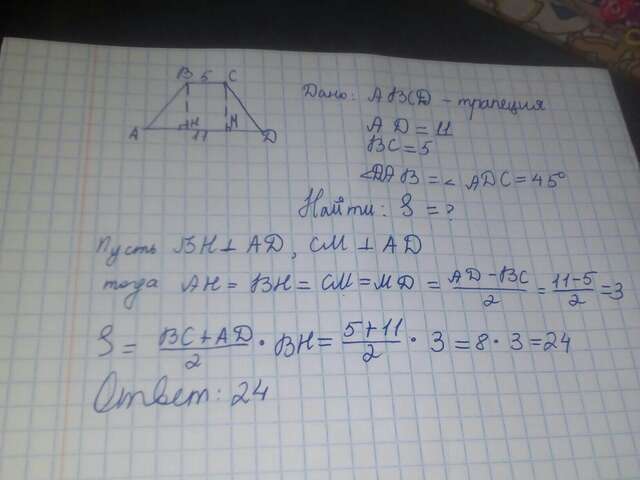 B 5 C
A H 11 M D
Дано: ABCD - трапеция
AD = 11
BC = 5
<DAB = < ADC = 45°
Найти: S = ?
Пусть BH ⊥ AD, CM ⊥ AD
тогда AH = BH = CM = MD = \frac{AD-BC}{2} = \frac{11-5}{2} = 3
S = \frac{BC+AD}{2} · BH = \frac{5+11}{2} · 3 = 8 · 3 = 24
Ответ: 24